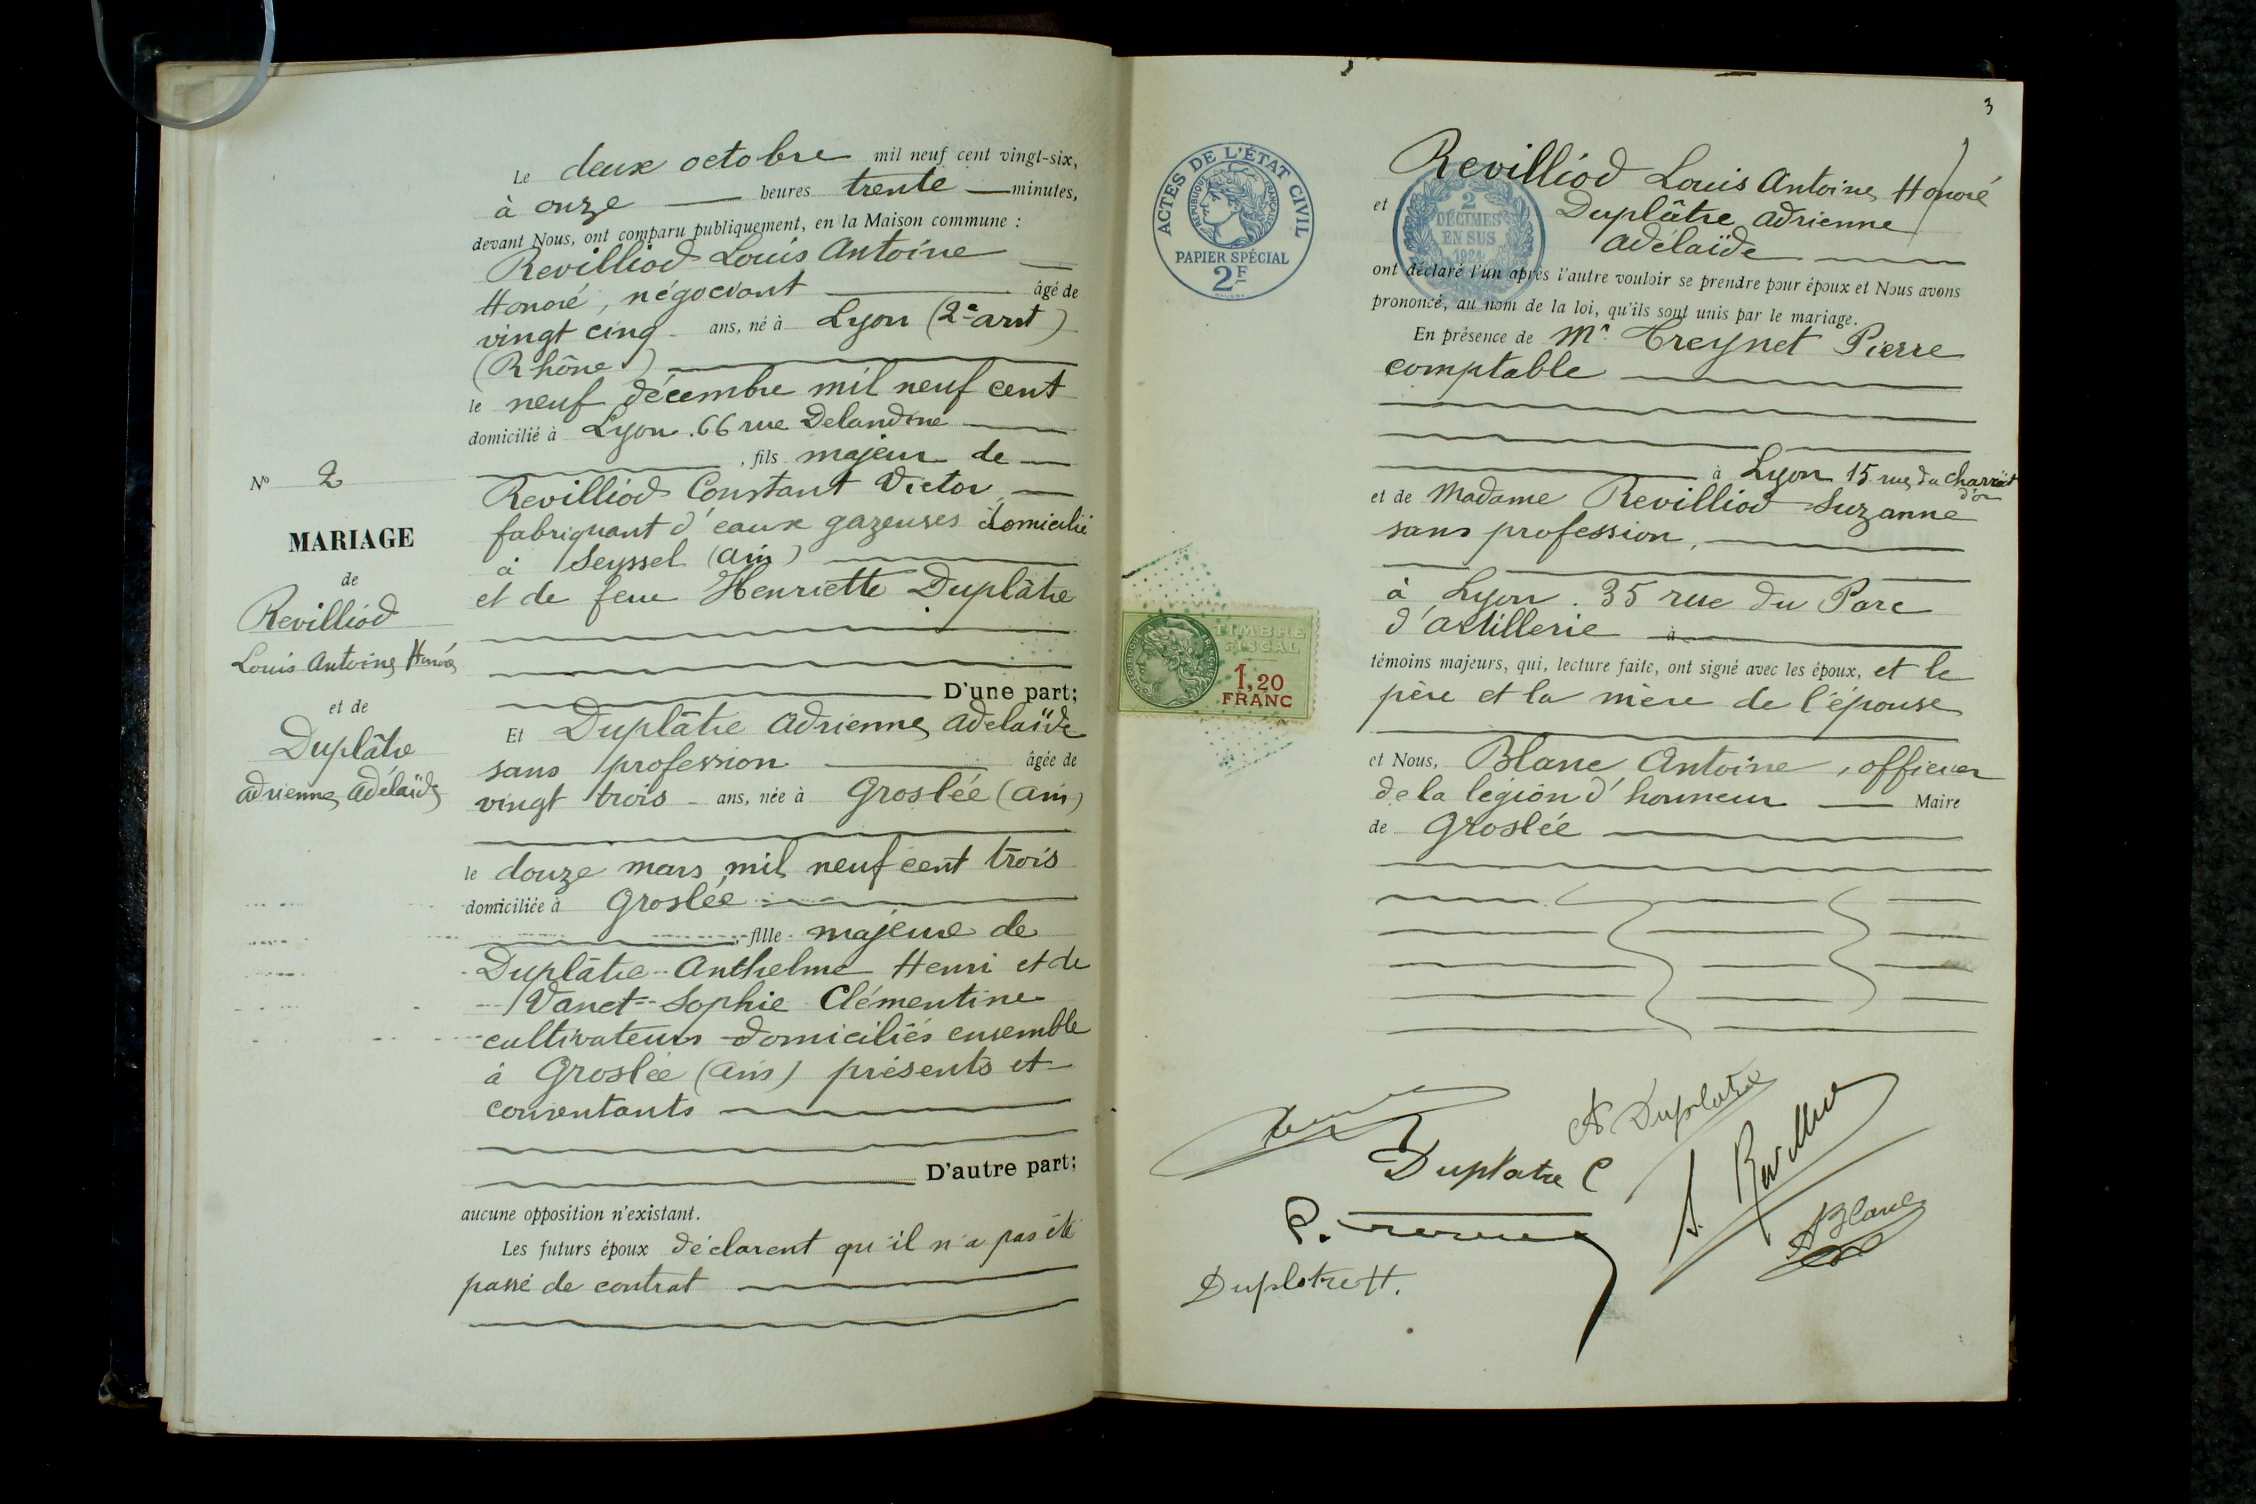 Le deux octobre mil neuf cent vingt-six,
à onze heures trente minutes,
devant Nous, ont comparu publiquement, en la Maison commune :
Revilliod Louis Antoine
Honoré, négociant âgé de
vingt cinq ans, né à Lyon (2e arrt)
(Rhône)
le neuf décembre mil neuf cent
domicilié à Lyon. 66 rue Delandine
, fils majeur de
Revilliod Constant Victor
fabriquant d'eaux gazeuses domicilié
à Seyssel (Ain)
et de feue Henriette Duplâtre
D'une part;
Et Duplâtre Adrienne Adelaïde
sans profession âgée de
vingt trois ans, née à Groslée (Ain)
le douze mars mil neuf cent trois
domiciliée à Groslée
, fille majeure de
Duplâtre Anthelme Henri et de
Vanet Sophie Clémentine
cultivateurs domiciliés ensemble
à Groslée (Ain) présents et
consentants
D'autre part;
aucune opposition n'existant.
Les futurs époux déclarent qu'il n'a pas été
passé de contrat
No 2
MARIAGE
de
Revilliod
Louis Antoine Honoré
et de
Duplâtre
Adrienne Adélaïde
3
ACTES DE L'ÉTAT CIVIL
RÉPUBLIQUE FRANÇAISE
PAPIER SPÉCIAL
2F
2
DÉCIMES
EN SUS
1924
TIMBRE
FISCAL
1,20
FRANC
Revilliod Louis Antoine Honoré
et Duplâtre Adrienne
Adélaïde
ont déclaré l'un après l'autre vouloir se prendre pour époux et Nous avons
prononcé, au nom de la loi, qu'ils sont unis par le mariage.
En présence de Mr Treynet Pierre
comptable
à Lyon 15 rue du Charriot
d'or
et de Madame Revilliod Suzanne
sans profession,
à Lyon. 35 rue du Parc
d'artillerie à
témoins majeurs, qui, lecture faite, ont signé avec les époux, et le
père et la mère de l'épouse
et Nous, Blanc Antoine, officier
de la légion d'honneur Maire
de Groslée
A Duplatre
Duplatre C
S. Revilliod
P.
ABlanc
Duplatre H.